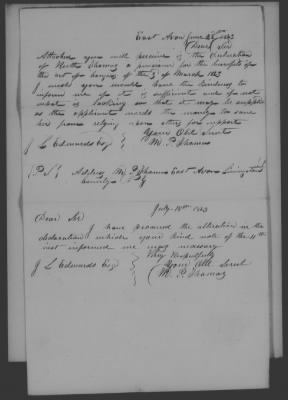 East Avon June 25th 1843
(Dear) Sir
Attached you will perceive is the declaration
of Martha Thomas a pensioner for the benefits of
the act of Congress of the 3d of March 1843
I wish you would have the kindness to
inform me if it is sufficient and if not
what is lacking so that it may be supplied
as the applicant needs the money to save
her from relying upon others for support
Yours Obt Servt
J L Edwards Esq } M. P. Thomas
(P.S.) Address M. P. Thomas East Avon Livingston
County N Y
July 18th 1843
Dear Sir
I have procured the alteration in the
declaration which your kind note of the 11th
inst informed me was necessary
Very Respectfully
J L Edwards Esq } Your Obt Servt
M. P. Thomas